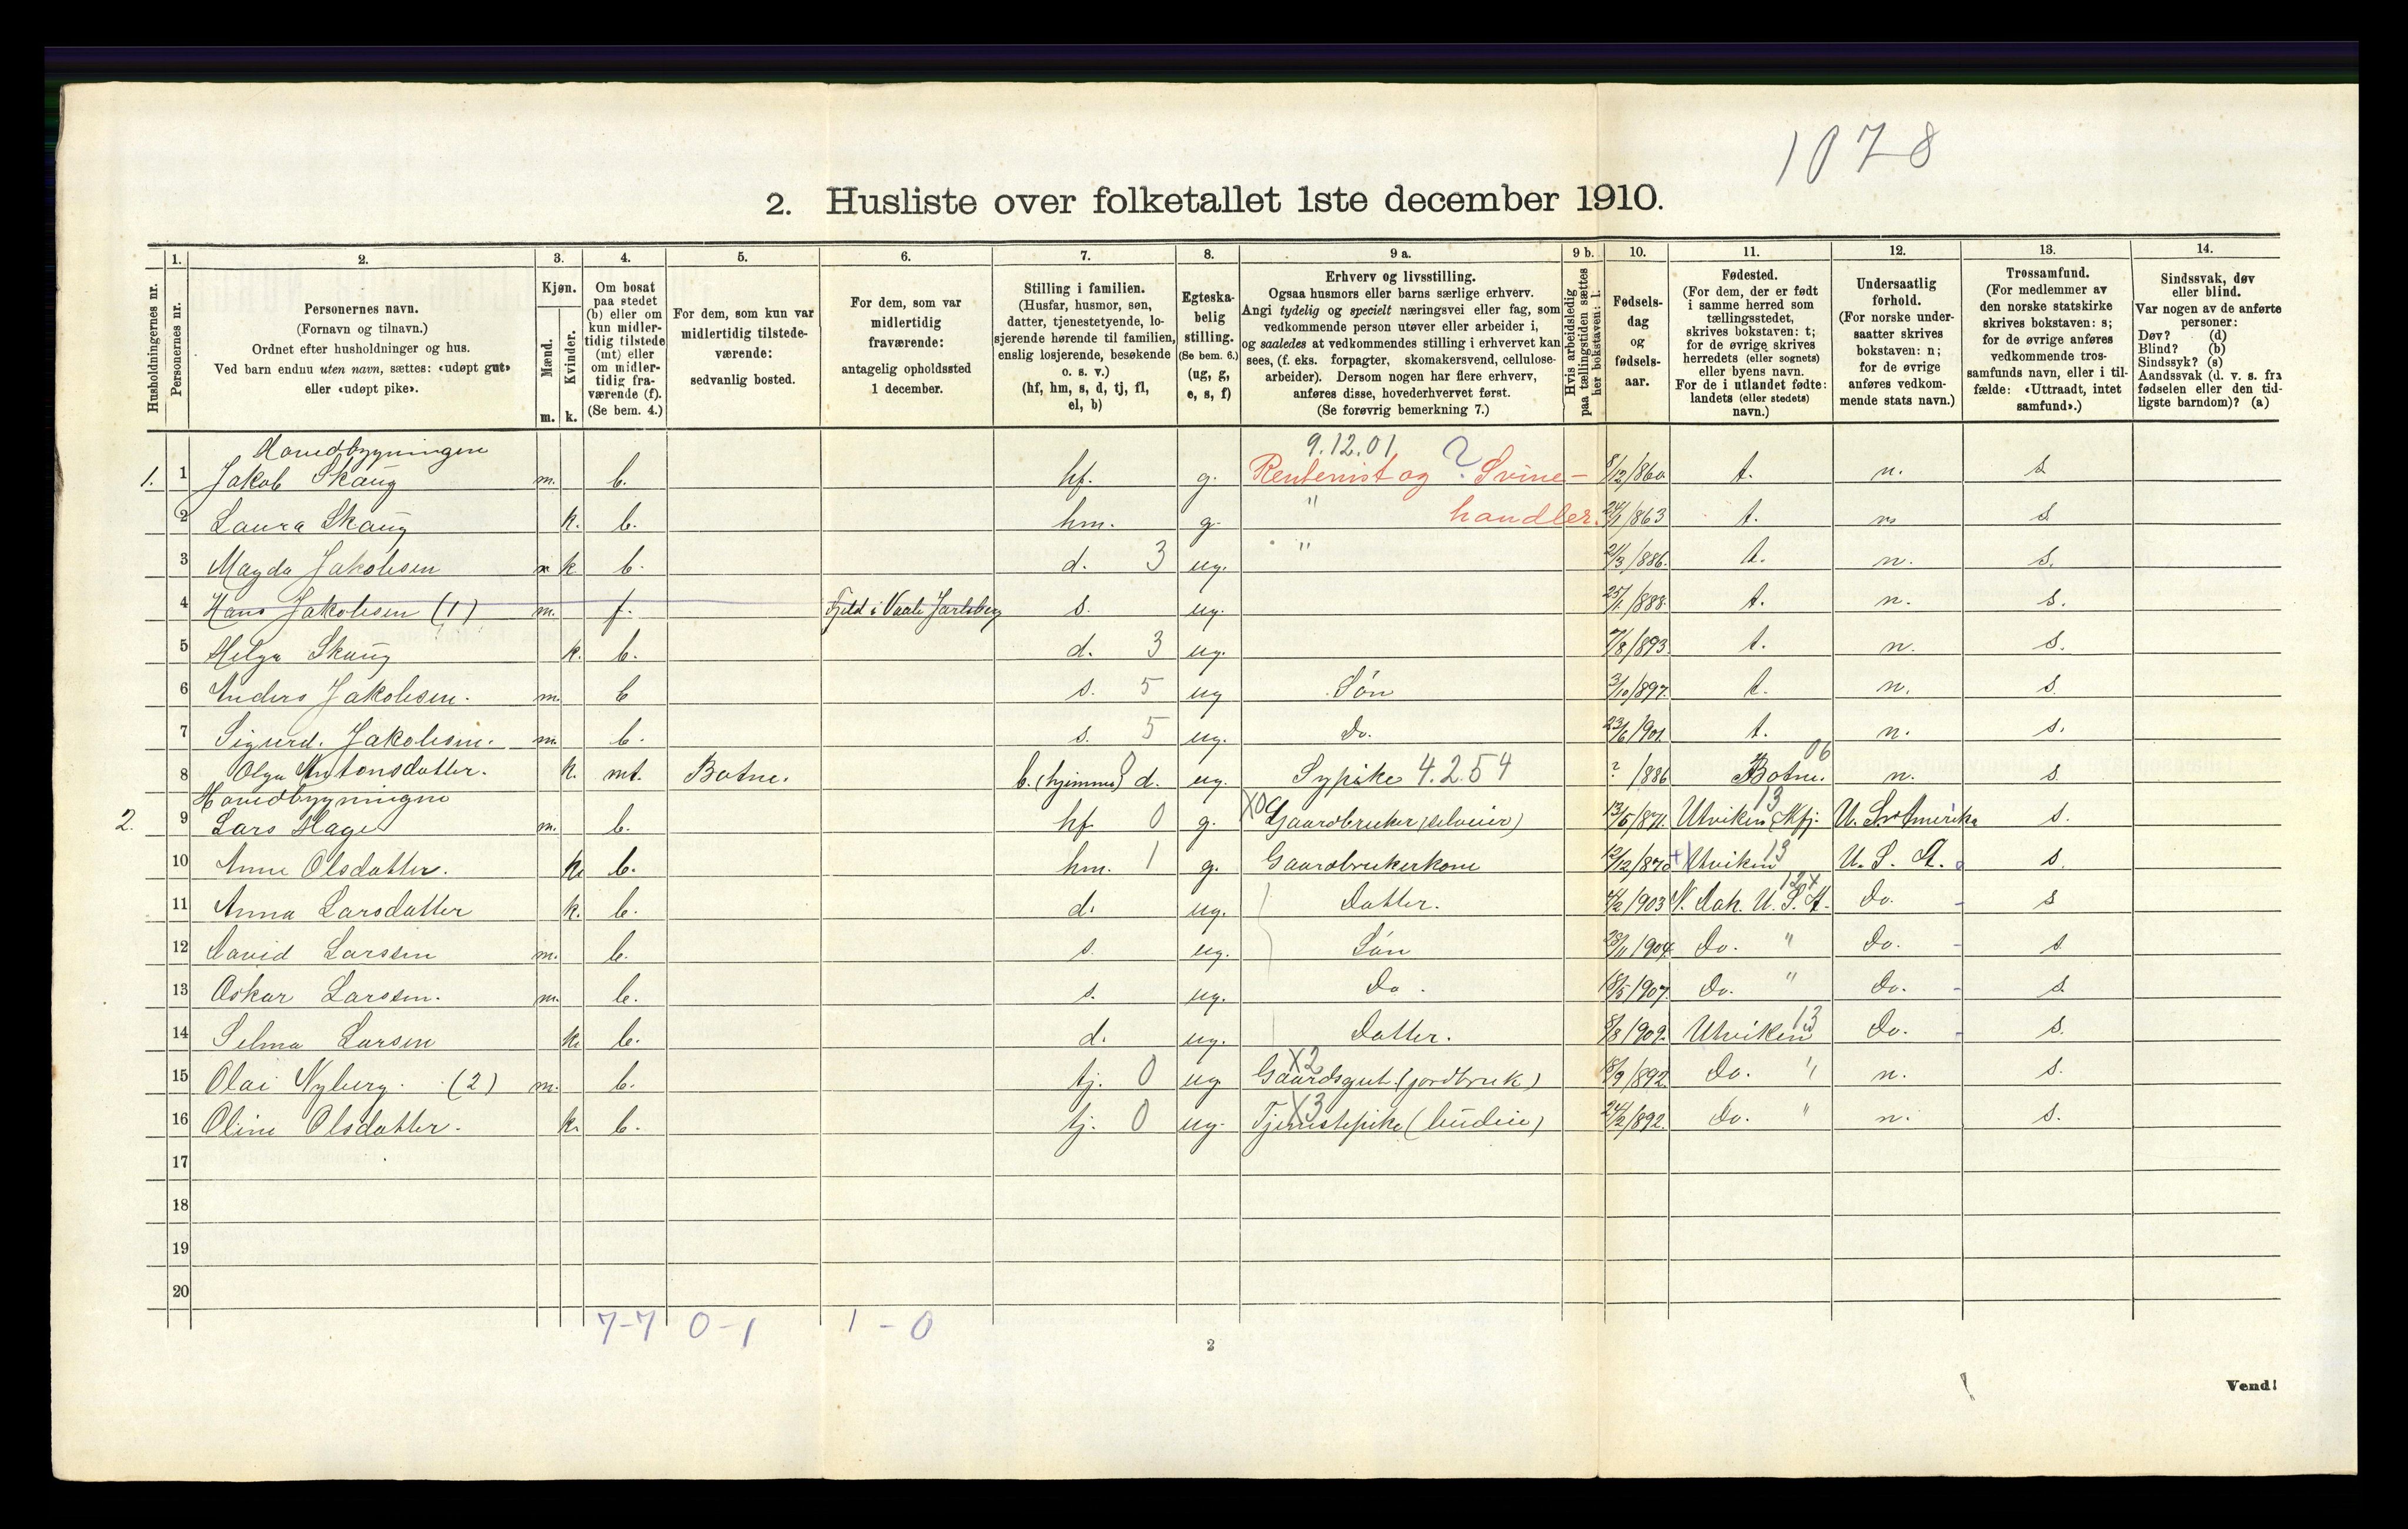 1078
2. Husliste over folketallet 1ste december 1910.
Husholdningernes nr.
1. Personernes nr.
2. Personernes navn. (Fornavn og tilnavn.) Ordnet efter husholdninger og hus. Ved barn endnu uten navn, sættes: «udøpt gut» eller «udøpt pike».
3. Kjøn. Mænd. m. Kvinder. k.
4. Om bosat paa stedet (b) eller om kun midler-tidig tilstede (mt) eller om midler-tidig fra-værende (f). (Se bem. 4.)
5. For dem, som kun var midlertidig tilstede-værende: sedvanlig bosted.
6. For dem, som var midlertidig fraværende: antagelig opholdssted 1 december.
7. Stilling i familien. (Husfar, husmor, søn, datter, tjenestetyende, lo-sjerende hørende til familien, enslig losjerende, besøkende o. s. v.) (hf, hm, s, d, tj, fl, el, b)
8. Egteska-belig stilling. (Se bem. 6.) (ug, g, e, s, f)
9 a. Erhverv og livsstilling. Ogsaa husmors eller barns særlige erhverv. Angi tydelig og specielt næringsvei eller fag, som vedkommende person utøver eller arbeider i, og saaledes at vedkommendes stilling i erhvervet kan sees, (f. eks. forpagter, skomakersvend, cellulose-arbeider). Dersom nogen har flere erhverv, anføres disse, hovederhvervet først. (Se forøvrig bemerkning 7.)
9 b. Hvis arbeidsledig paa tællingstiden sættes her bokstaven: l.
10. Fødsels-dag og fødsels-aar.
11. Fødested. (For dem, der er født i samme herred som tællingsstedet, skrives bokstaven: t; for de øvrige skrives herredets (eller sognets) eller byens navn. For de i utlandet fødte: landets (eller stedets) navn.)
12. Undersaatlig forhold. (For norske under-saatter skrives bokstaven: n; for de øvrige anføres vedkom-mende stats navn.)
13. Trossamfund. (For medlemmer av den norske statskirke skrives bokstaven: s; for de øvrige anføres vedkommende tros-samfunds navn, eller i til-fælde: «Uttraadt, intet samfund».)
14. Sindssvak, døv eller blind. Var nogen av de anførte personer: Døv? (d) Blind? (b) Sindssyk? (s) Aandssvak (d. v. s. fra fødselen eller den tid-ligste barndom)? (a)
Hovedbygningen 9.12.01 ?
1. 1 Jakob Skaug m. b. hf. g. Rentenist og Svine- 8/12/860 t. n. s
2 Laura Skaug k. b. hm. g. " handler. 24/1/863 t. n s
3 Magda Jakobsen k b. d. 3 ug. " 21/3/886. t. n. s.
4 Hans Jakobsen (1) m. f. Fjeld i Vaale Jarlsberg s. ug. 25/1/888. t. n. s.
5 Helga Skaug k. b. d. 3 ug. 7/8/893 t. n. s.
6 Anders Jakobsen. m. b s. 5 ug Søn 3/10/897. t. n. s.
7 Sigurd. Jakobsen. m. b. s. 5 ug. Do. 23/6/1901. t. n. s.
8 Olga Antonsdatter. k. mt. Botne. b. (hjemme) 0 d. ug. Sypike 4.2.54 ? /886 Botne. 06 n. s
Hovedbygningen
2. 9 Lars Hage m. b. hf 0 g. X0 Gaardbruker (selveier) 13/5/871. Utviken Nfj. 13 U. St. Amerika s.
10 Anne Olsdatter. k b. hm. 1 g. Gaardbrukerkone 12/12/870 Utviken 13 U. S. A. s.
11 Anna Larsdatter k. b. d. ug. Datter. 4/2/1903 N. Dak. U. S. A. Do. - s
12 David Larssen m. b. s. ug. Søn 28/11/1904. Do. " Do. - s
13 Oskar Larssen. m. b. s. ug. Do. 18/5/1907. Do. " Do. - s.
14 Selma Larsen k. b. d. ug. Datter. 8/8/1909. Utviken 13 Do. - s.
15 Olai Nyberg. (2) m. b. tj. 0 ug X2 Gaardsgut (jordbruk) 18/9/892 Do. " n. s.
16 Oline Olsdatter. k. b. tj. 0 ug. X3 Tjenestepike (budeie) 24/2/892. Do. " n. s.
17
18
19
20
7-7 0-1 1-0
2
Vend!